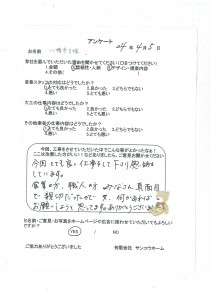 アンケート
24年4月5日
お名前
弊社を選んでいただいた理由を聞かせてください(○をつけてください)
1金額 2信頼性・人柄 3デザイン・提案内容
4その他(
営業スタッフの対応はどうでしたか?
1とても良かった 2.良かった 3.どちらでもない
4.悪い 5.とても悪い
大工の仕事内容はどうでしたか?
1とても良かった 2.良かった 3.どちらでもない
4.悪い 5.とても悪い
その他業者の仕事内容はどうでしたか?
1とても良かった 2.良かった 3.どちらでもない
4.悪い 5.とても悪い
今回、工事をさせていただいた中でこんな事がよかったなぁ!
ここは改善した方がいい!などありましたら、ご意見をお願いします。
今回とても良い仕事をして下さり感謝
しています。
営業の方、職人の方 みなさん真面目
で親切だったので 又、何かあれば
お願いしようと思ってます。ありがとうございました
お名前・ご意見・お写真をホームページや広告に使わせていただいてもよろしい
ですか?
YES / NO
ご協力ありがとうございました 有限会社 サンコウホーム